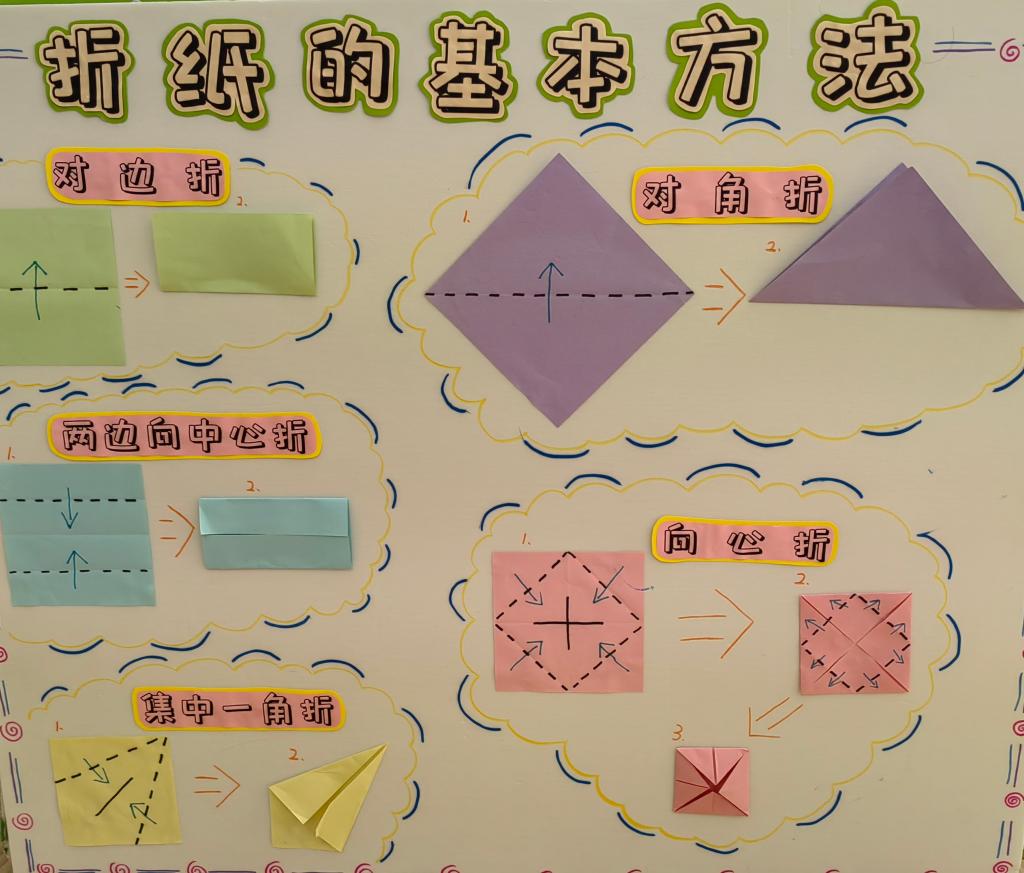 折纸的基本方法
对边折
2.
对角折
1.
2.
两边向中心折
1.
2.
向心折
1.
2.
3.
集中一角折
1.
2.